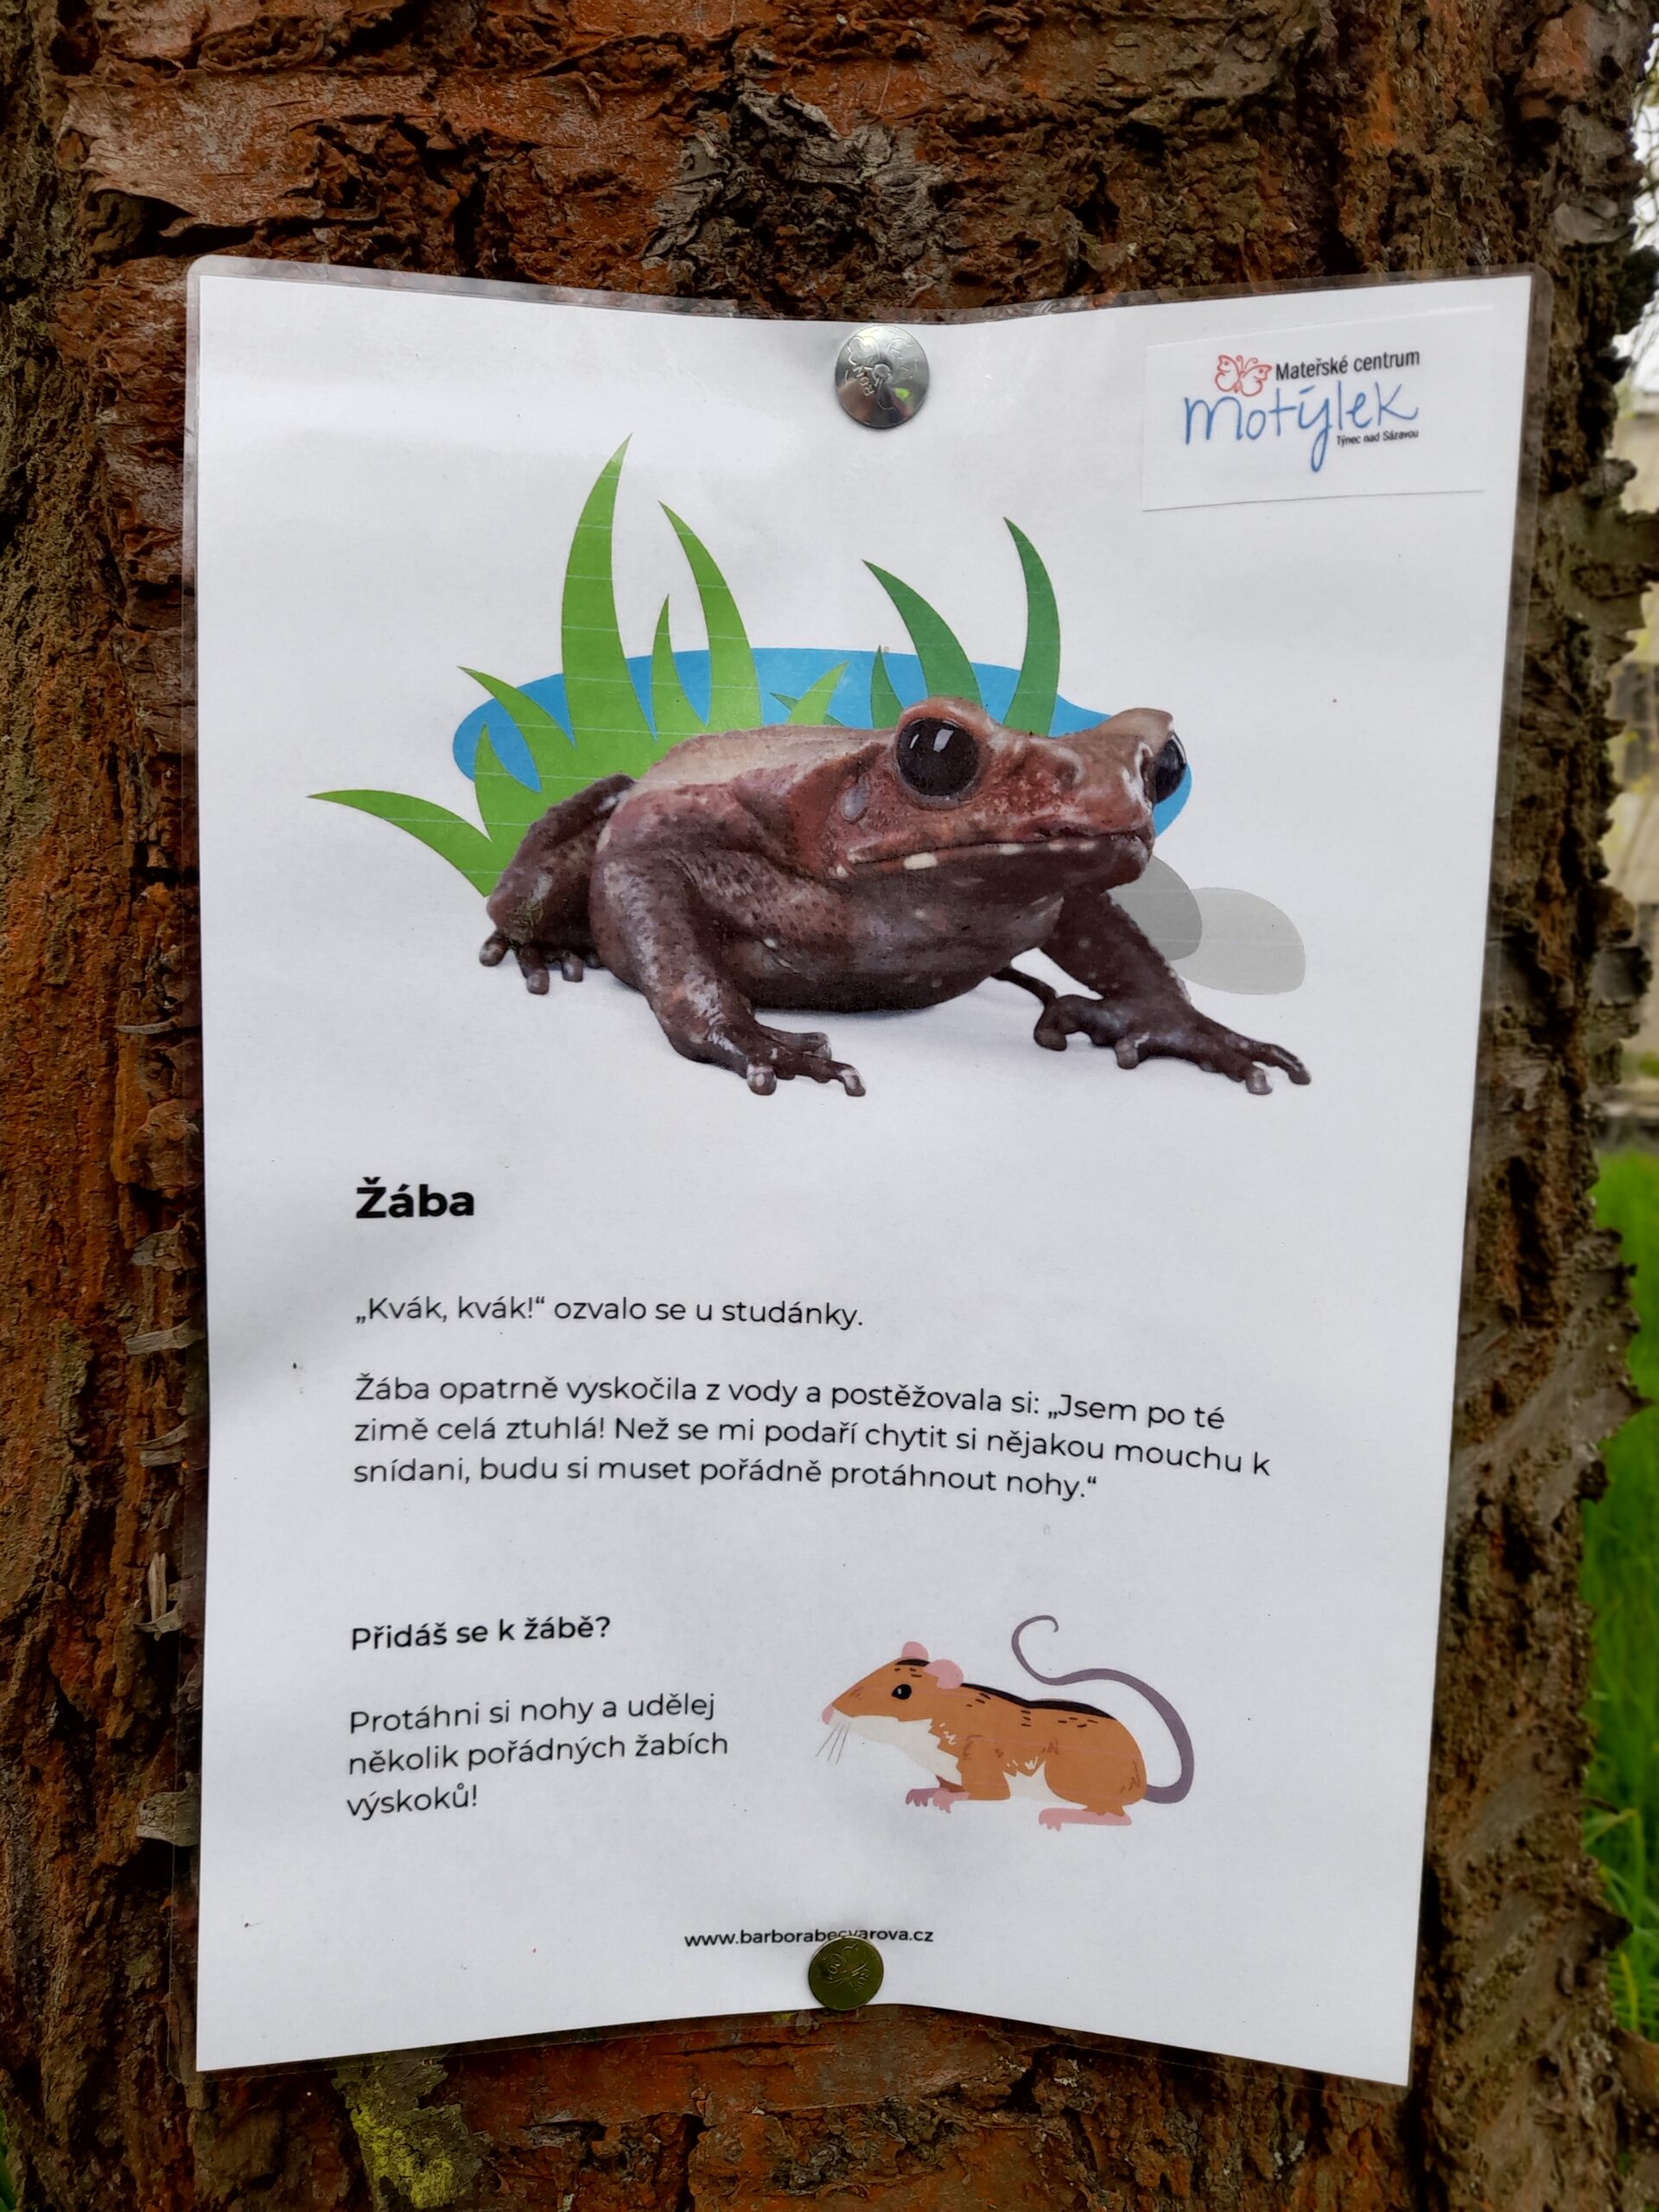 Mateřské centrum
Motýlek
Týnec nad Sázavou
Žába
„Kvák, kvák!“ ozvalo se u studánky.
Žába opatrně vyskočila z vody a postěžovala si: „Jsem po té
zimě celá ztuhlá! Než se mi podaří chytit si nějakou mouchu k
snídani, budu si muset pořádně protáhnout nohy.“
Přidáš se k žábě?
Protáhni si nohy a udělej
několik pořádných žabích
výskoků!
www.barborabecvarova.cz